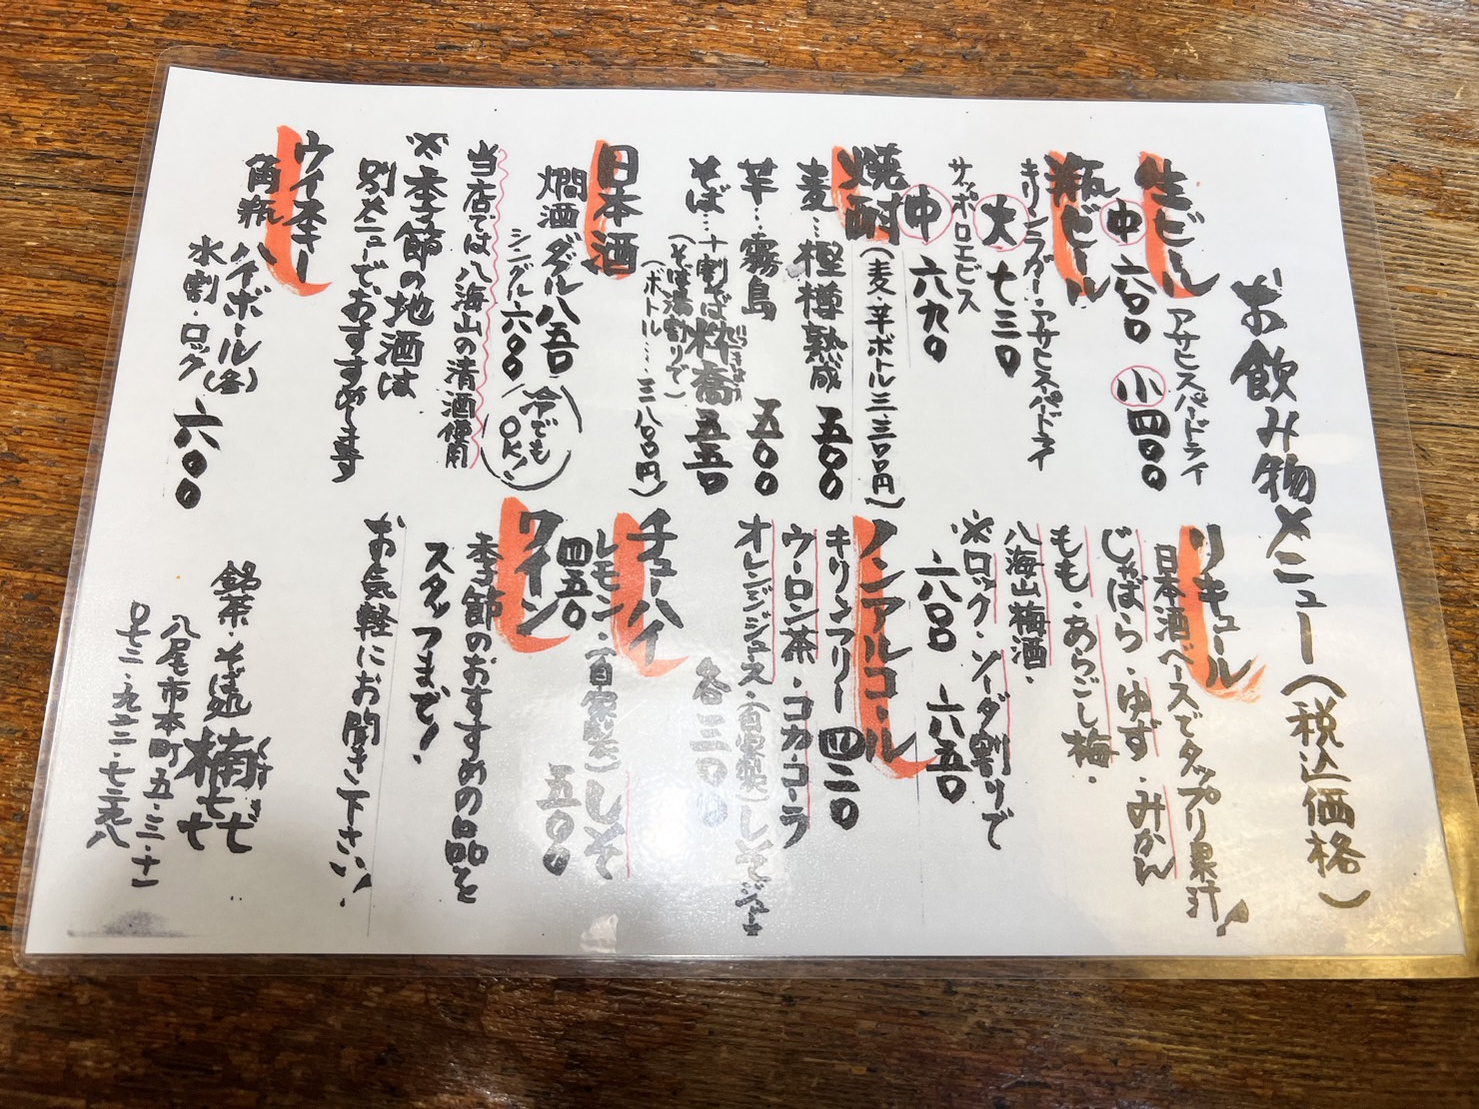 お飲み物メニュー(税込価格)
生ビール アサヒスーパードライ
中 六〇〇 小 四〇〇
瓶ビール
キリンラガー・アサヒスーパードライ
大 七三〇
サッポロエビス
中 六九〇
焼酎(麦・芋ボトル三、三〇〇円)
麦…樫樽熟成 五〇〇
芋…霧島 五〇〇
そば…十割そば粋蕎 五五〇
(そば湯割りで)
(ボトル…三八〇〇円)
日本酒
燗酒 ダブル 八五〇
シングル 六〇〇
(冷でもOK!)
当店では八海山の清酒使用
※季節の地酒は
別メニューでおすすめします
ウイスキー
角瓶 ハイボール(各)
水割・ロック 六〇〇
リキュール
日本酒ベースでタップリ果汁!
じゃばら・ゆず・みかん
もも・あらごし梅・
八海山梅酒・
※ロック・ソーダ割りで
六〇〇 六五〇
ノンアルコール
キリンフリー 四二〇
ウーロン茶・コカ・コーラ
オレンジジュース・(自家製)しそジュース
各三〇〇
チューハイ
レモン・(自家製)しそ
四五〇 五〇〇
ワイン
季節のおすすめの品を
スタッフまで!
お気軽にお聞き下さい!
銘茶・そば処 楠七七
八尾市本町五・三・十一
〇七二・九二二・七三九八